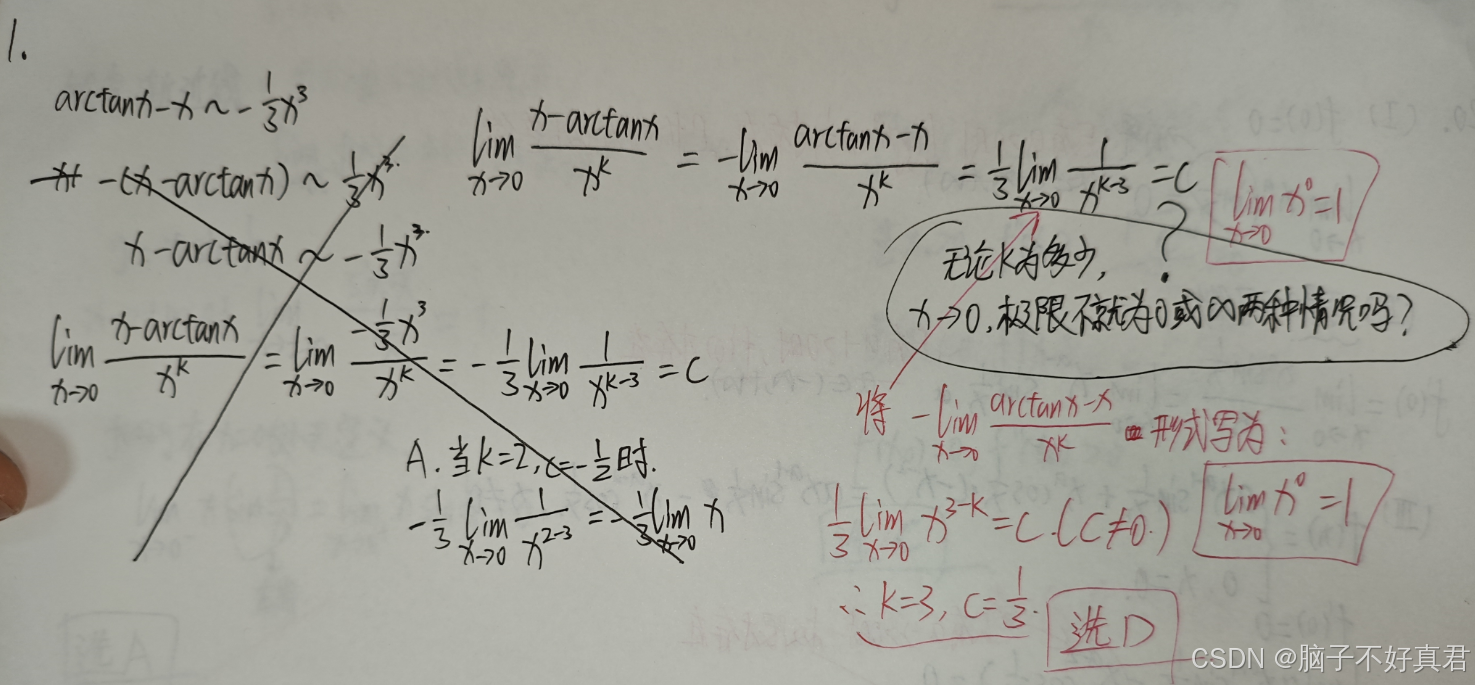 1.
arctanx-x ~ -1/3x³
-(x-arctanx) ~ 1/3x³
x-arctanx ~ -1/3x³
lim x→0 (x-arctanx)/x^k = lim x→0 (-1/3x³)/x^k = -1/3 lim x→0 1/x^(k-3) = C
A. 当k=2, c=-1/2时.
-1/3 lim x→0 1/x^(2-3) = -1/3 lim x→0 x
lim x→0 (x-arctanx)/x^k = -lim x→0 (arctanx-x)/x^k = 1/3 lim x→0 1/x^(k-3) = C
lim x→0 x⁰=1
?
无论k为多少,
x→0, 极限不就为0或∞两种情况吗?
将 -lim x→0 (arctanx-x)/x^k 形式写为:
1/3 lim x→0 x^(3-k) = C. (C≠0.)
lim x→0 x⁰=1
∴ k=3, c=1/3.
选D
CSDN @脑子不好真君